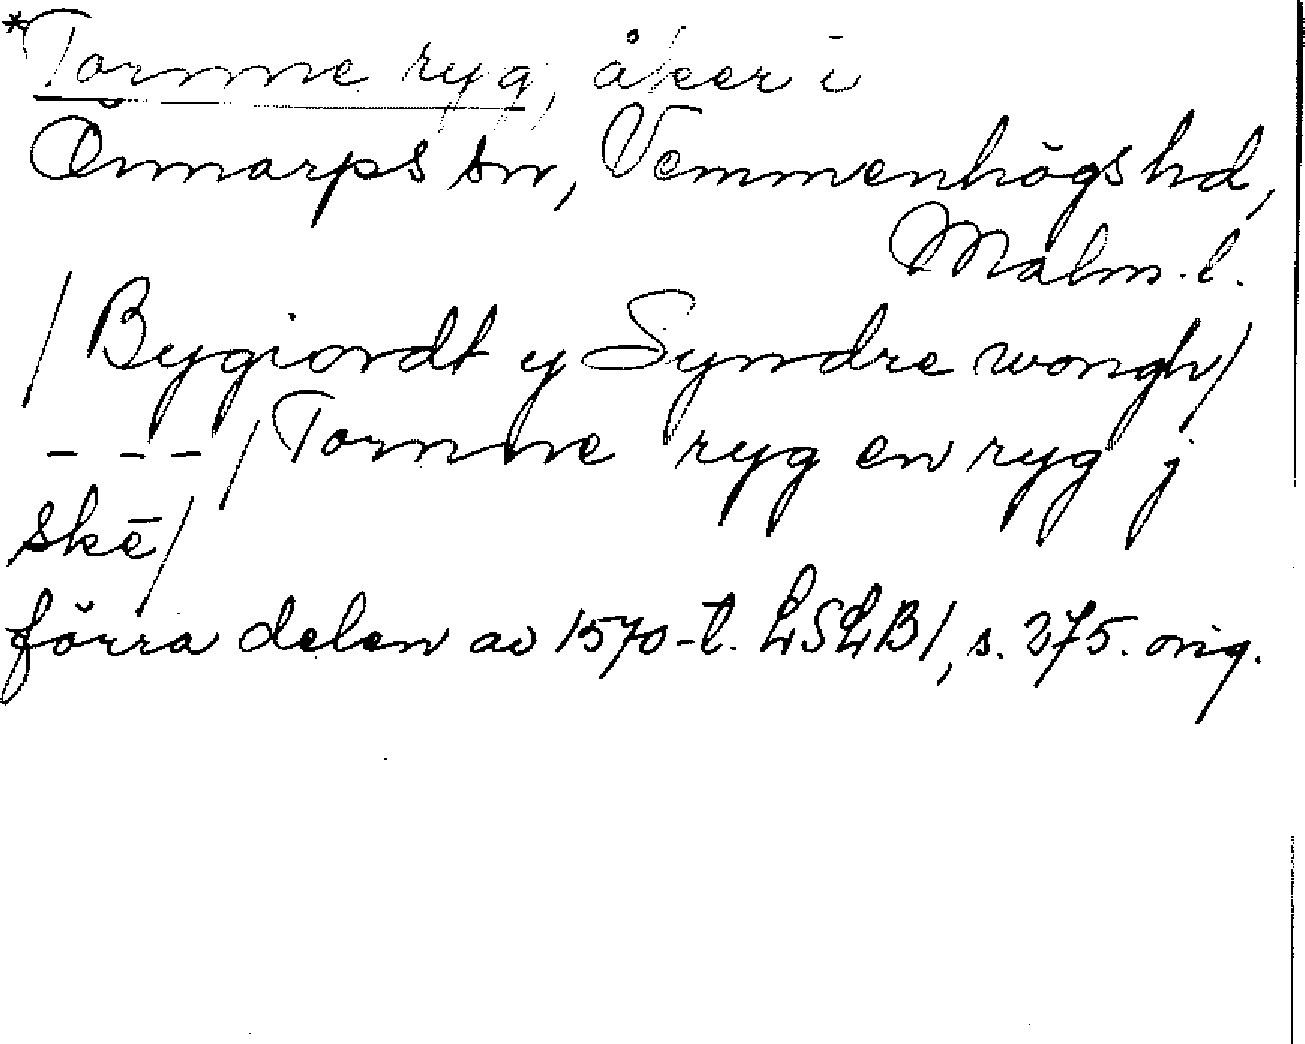 *Tornne ryg, åker i
Önnarps sn, Vemmenhögs hd,
Malm. l.
/Bygiordt y Syndre wongh/
- - - /Tornne ryg en ryg j
skē/
förra delen av 1570-t. LSLB1, s. 275. orig.